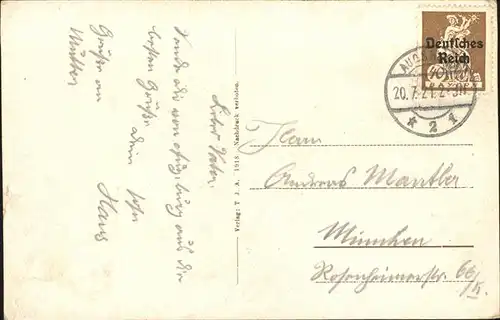 Lieber Vater.
Sende dir von Augsburg aus die
besten Grüße dein Sohn
Hans
Grüße an
Mutter
Verlag: T. J. A. 1918. Nachdruck verboten.
Deutsches
Reich
20.7.21.2-3N
* 2 *
Herrn
Andreas Mantler
München
Rosenheimerstr. 66/